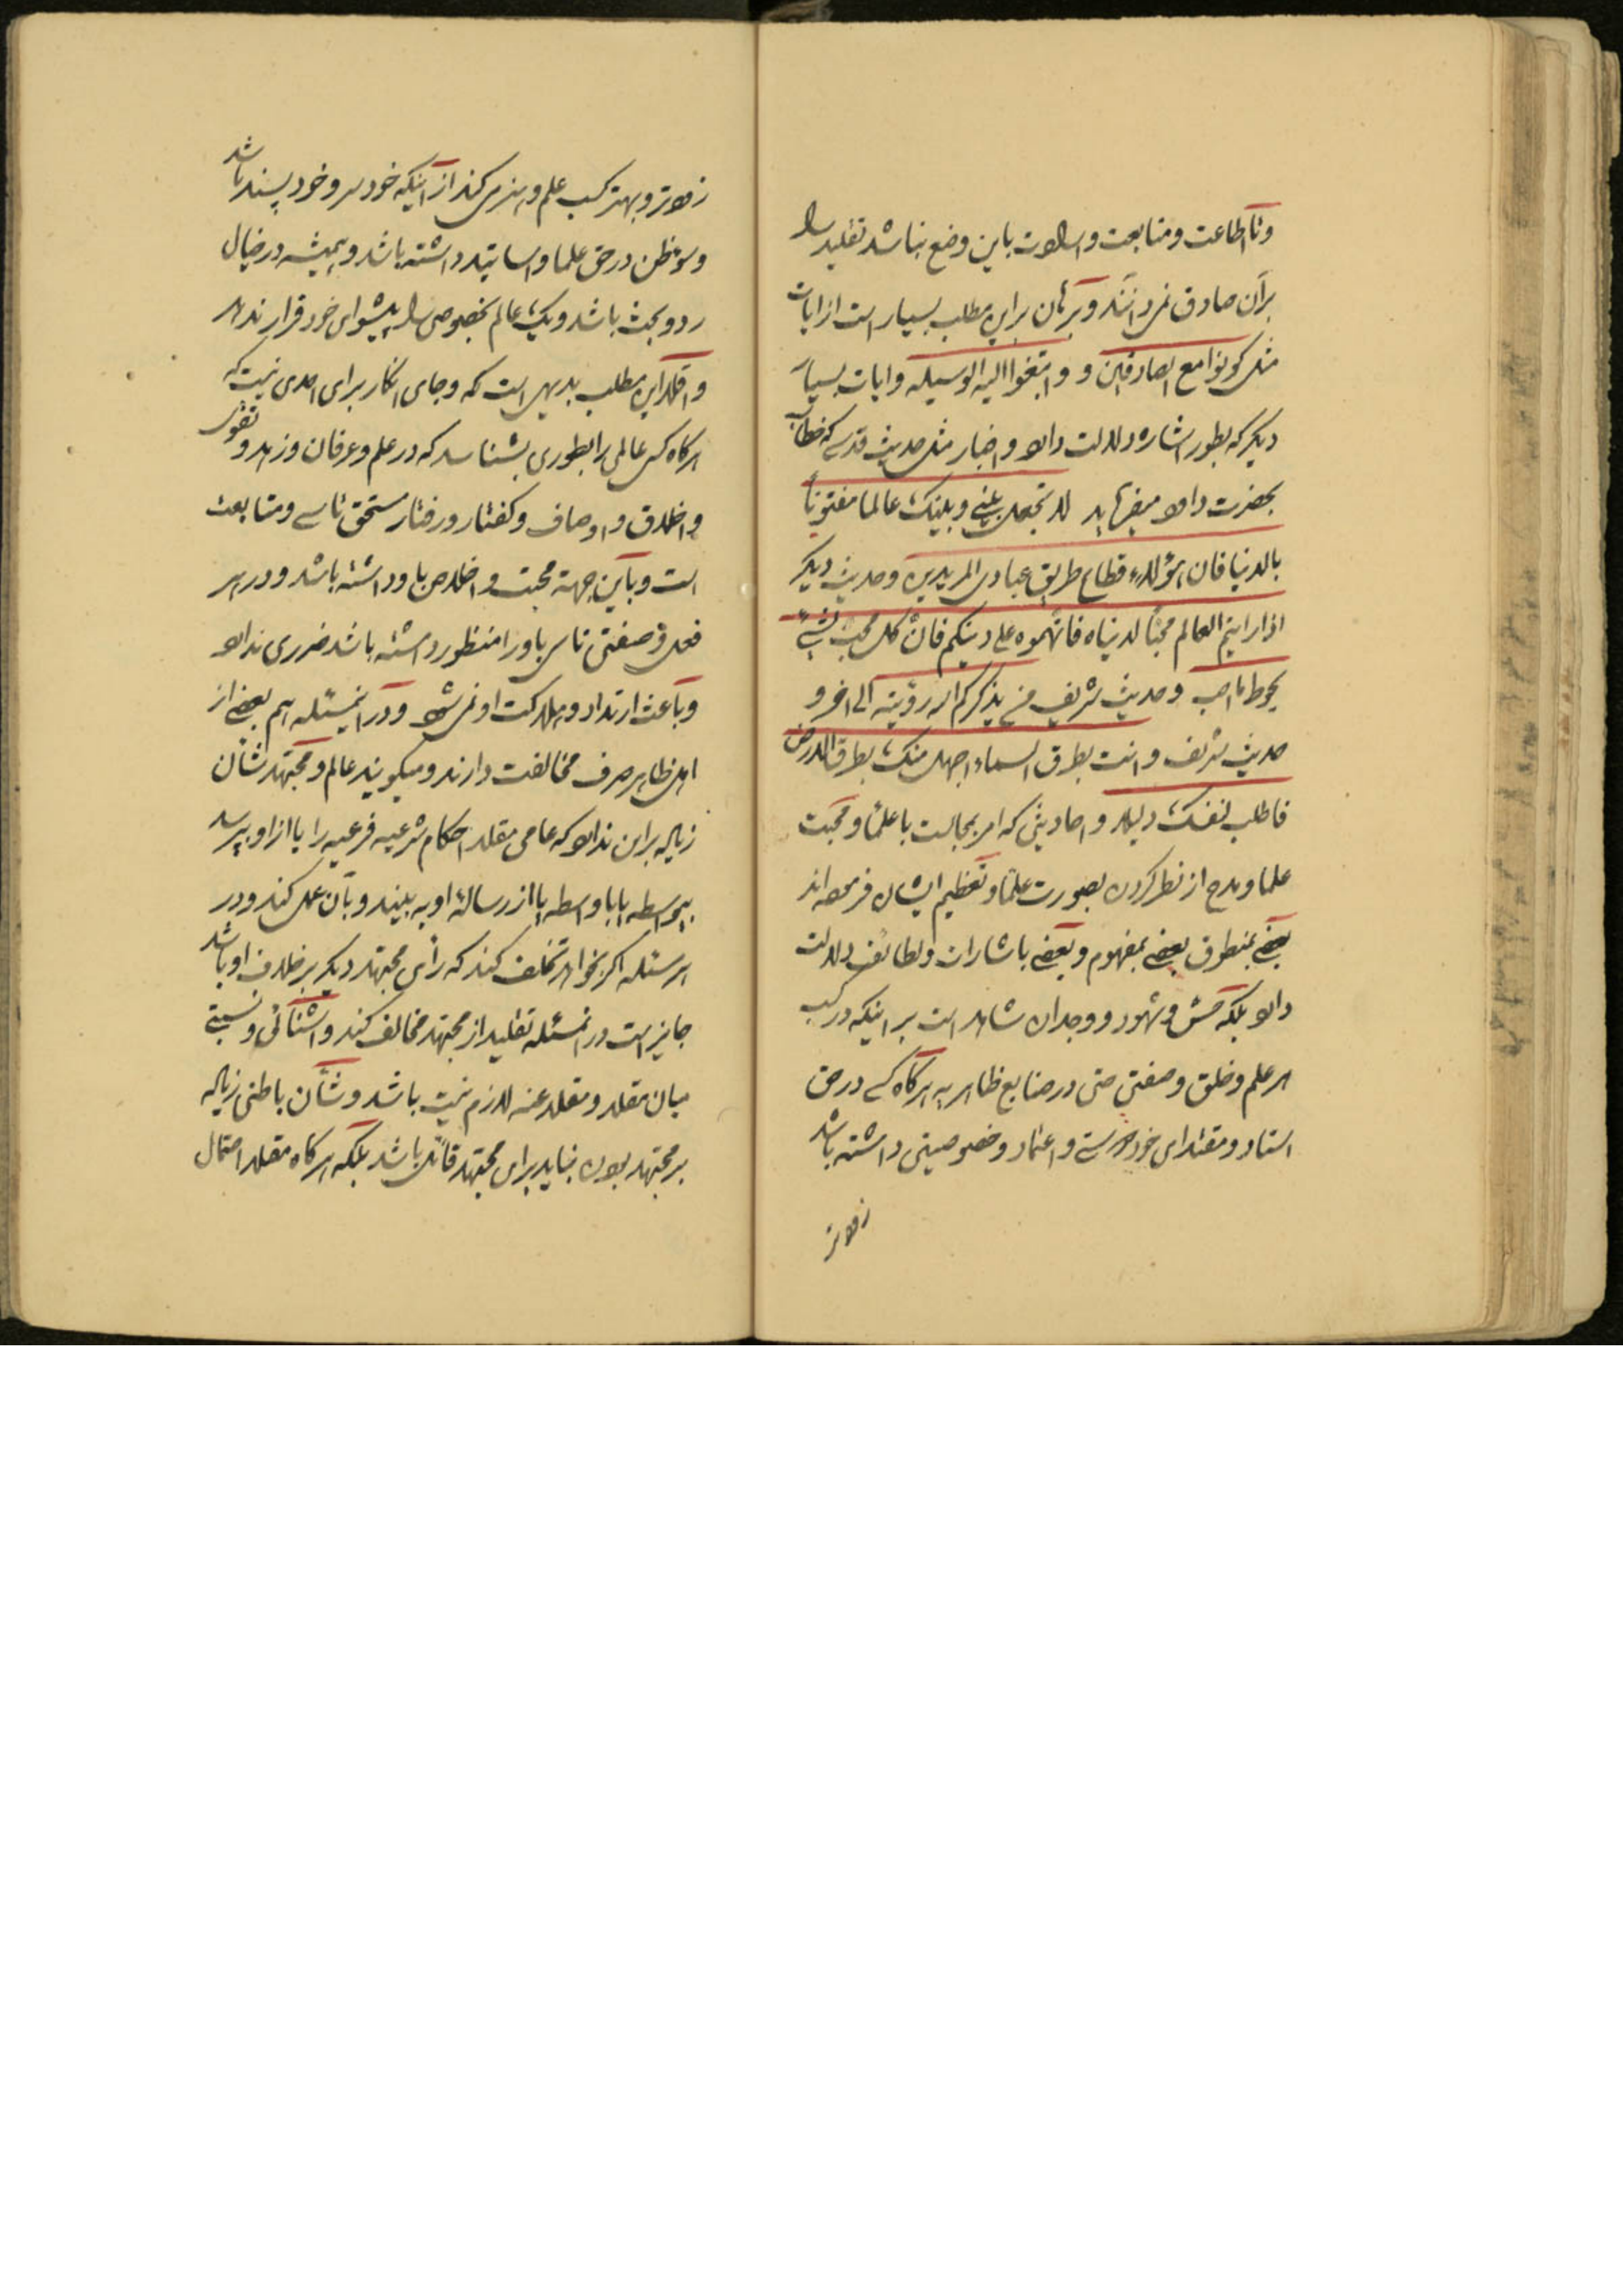 وتا اطاعت ومتابعت وارادت باین وضع نباشد تقلید را
برآن صادق نمیدانند وبرهان براین مطلب بسیار است از ایات
مثل کونوا مع الصادقین و وابتغوا الیه الوسیله وایات بسیار
دیگر که بطور اشاره دلالت دارد واخبار مثل حدیث قدسی که خطاب
بحضرت داود میفرماید لا تجعل بینی وبینک عالما مفتوناً
بالدنیا فان هؤلاء قطاع طریق عبادی المریدین وحدیث دیگر
اذا رایتم العالم محبّاً لدنیاه فاتّهموه علی دینکم فانّ کل محبّ لشیءٍ
یحوط ما احب وحدیث شریف من یذکرکم الله رؤیته الی اخر و
حدیث شریف وانت بطرق السماء اجهل منک بطرق الارض
فاطلب لنفسک دلیلا واحادیثی که امر بمجالست با علما ومحبت
علما ومدح از نظر کردن بصورت علما وتعظیم ایشان فرموده‌اند
بعضی بمنطوق بعضی بمفهوم وبعضی باشارات ولطائف دلالت
دارد بلکه حسّ وشهود ووجدان شاهد است بر اینکه در کسب
هر علم وخلق وصفتی حتی در صنایع ظاهریه هرگاه کسی در حق
استاد ومقتدای خود دوستی واعتماد وخصوصیتی داشته باشد
زودتر
زودتر وبهتر کسب علم وهنر می کند از اینکه خودسر وخودپسند باشد
وسوءظن در حق علما واساتید داشته باشد وهمیشه در خیال
رد وبحث باشد ویک عالم بخصوص را پیشوای خود قرار ندهد
واقلا این مطلب بدیهی است که وجای انکار برای احدی نیست که
هرگاه کسی عالمی را بطوری بشناسد که در علم وعرفان وزهد وتقوی
واخلاق واوصاف وگفتار ورفتار مستحق تاسی ومتابعت
است وباین جهة محبت واخلاص باو داشته باشد ودر هر
فعل وصفتی تاسی باو را منظور داشته باشد ضرری ندارد
وباعث ارتداد وهلاکت او نمی شود ودر اینمسئله هم بعضی از
اهل ظاهر صرف مخالفت دارند ومیگویند عالم ومجتهد شأن
زیاده براین ندارد که عامی مقلد احکام شرعیه فرعیه را یا از او بپرسد
بیواسطه یا باواسطه یا از رسالهٔ او به بیند وبآن عمل کند ودر
هر مسئله اگر بخواهد تخلف کند که رأی مجتهد دیگر برخلاف او باشد
جایز است در انمسئله تقلید از مجتهد مخالف کند واشنائی ونسبتی
میان مقلد ومقلد عنه لازم نیست باشد وشأن باطنی زیاده
بر مجتهد بودن نباید برای مجتهد قائل باشد بلکه هرگاه مقلد احتمال